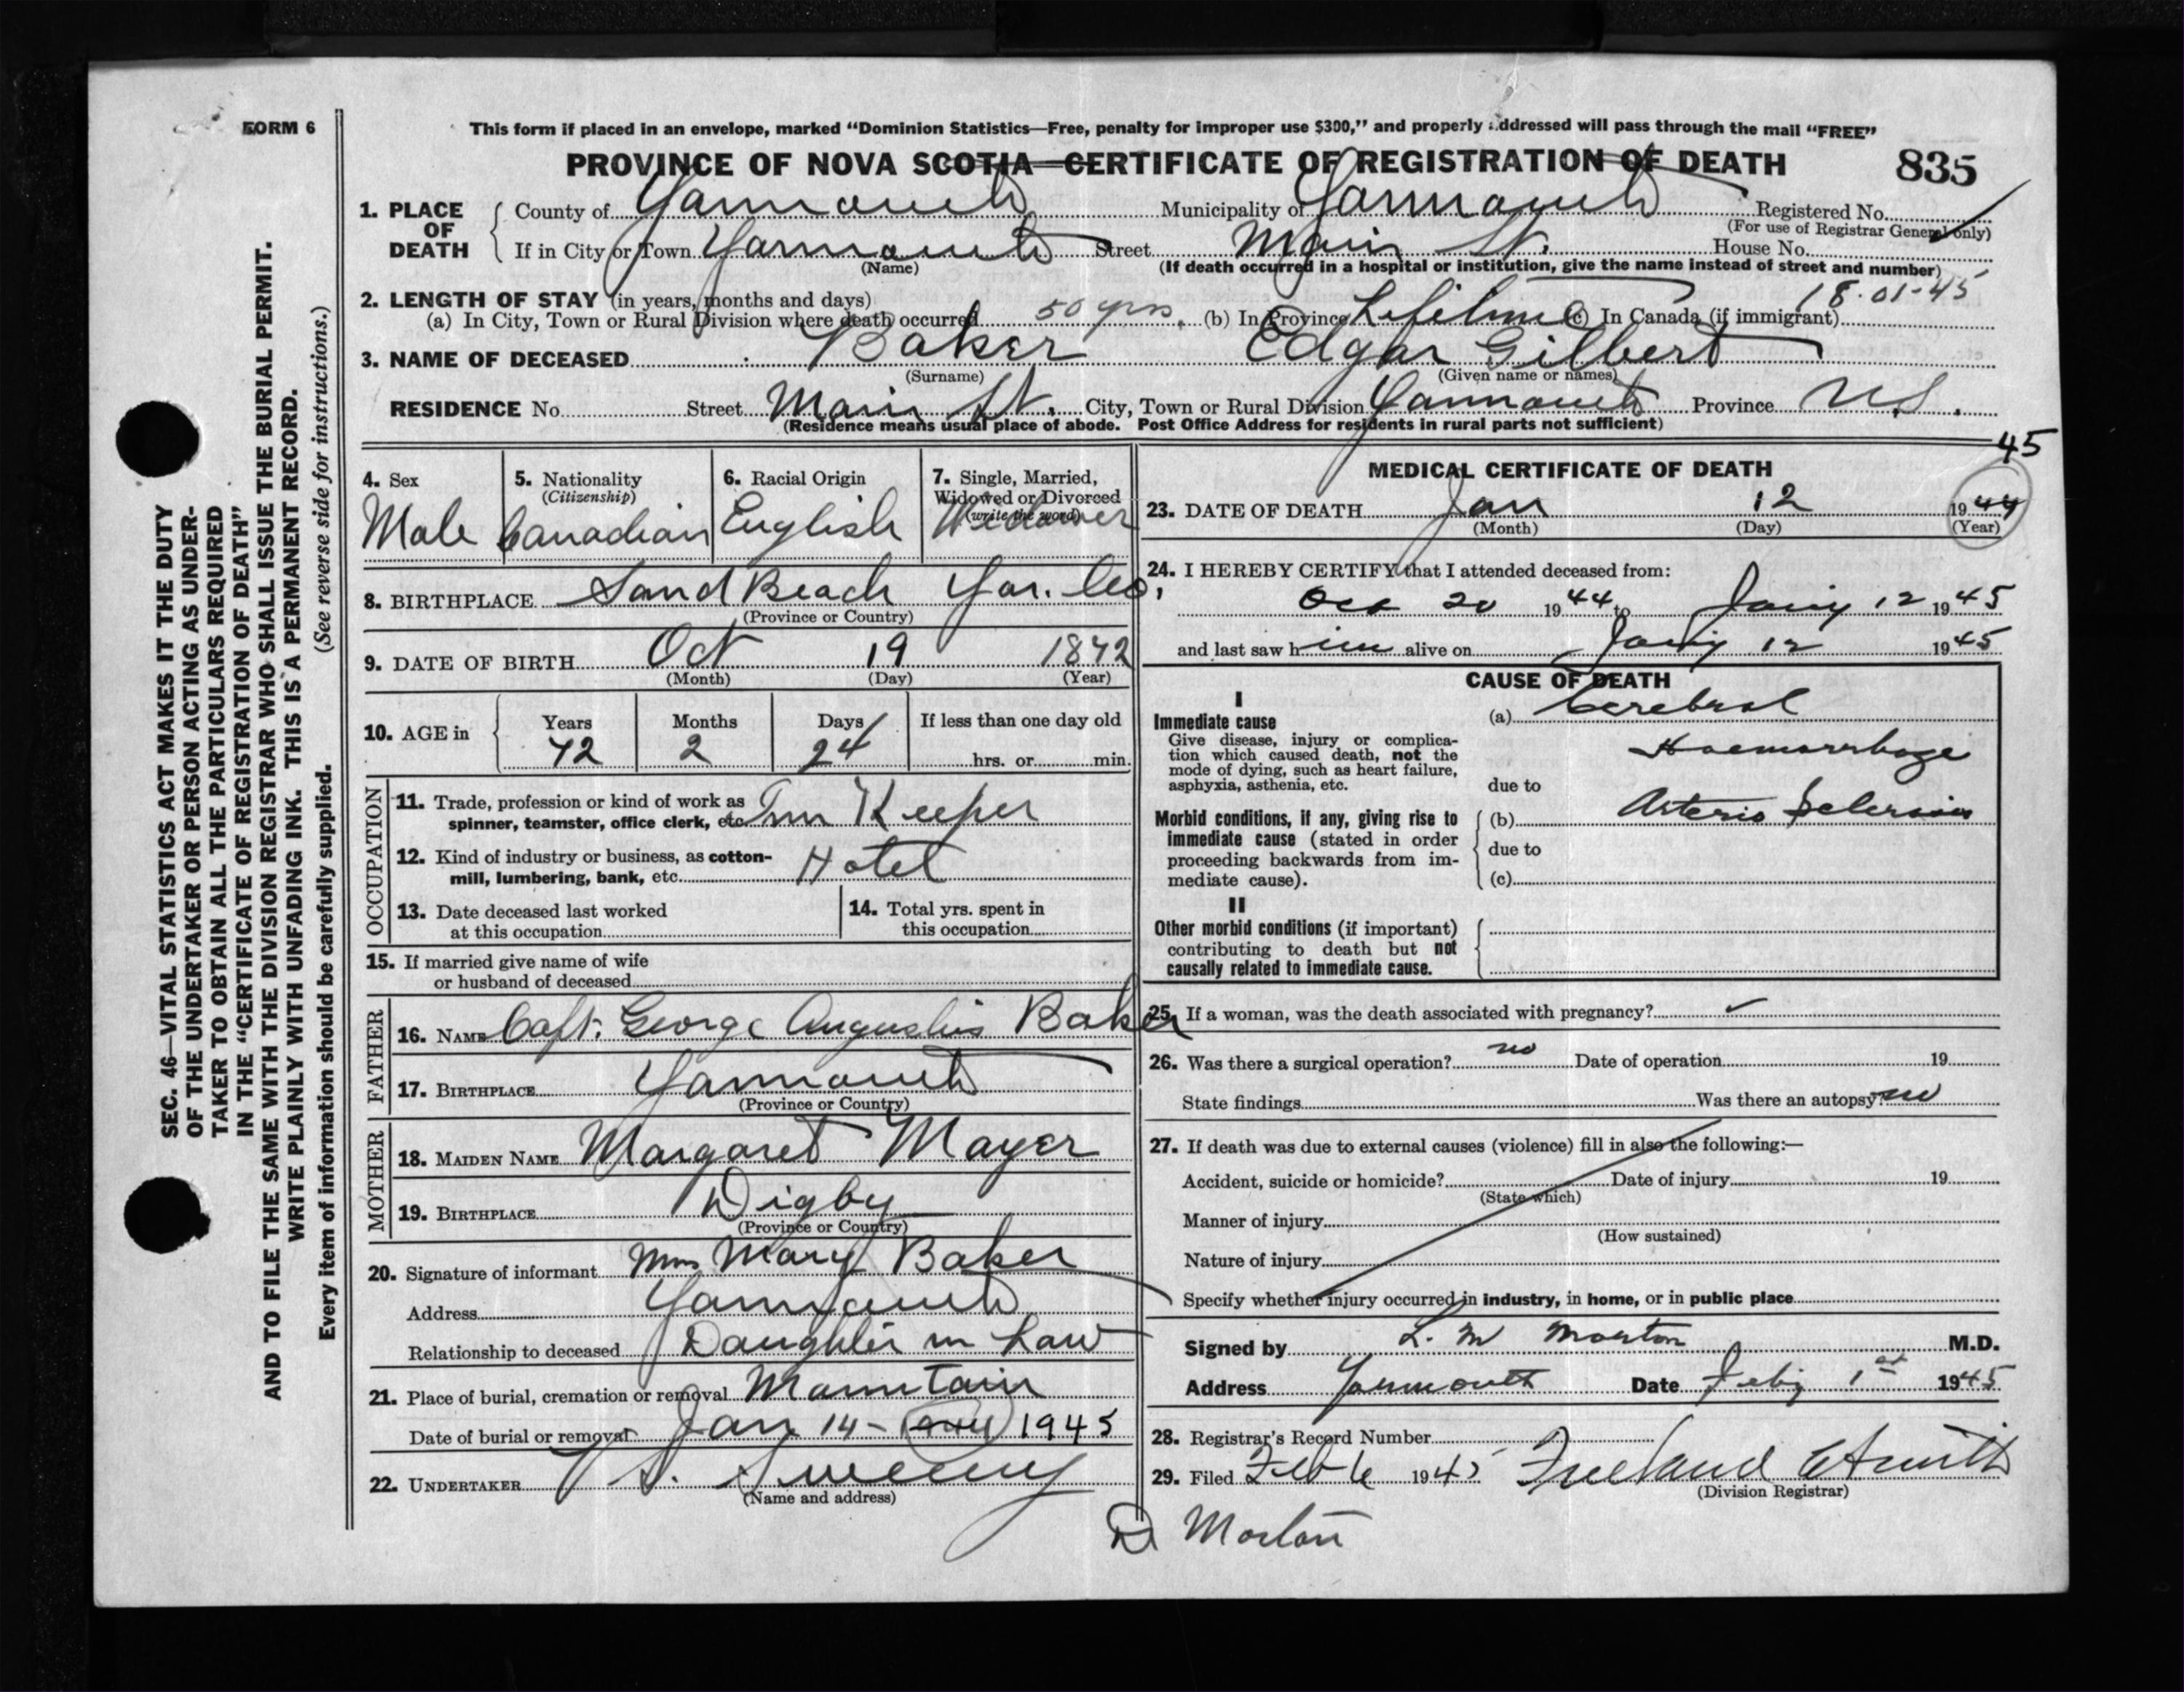 FORM 6
This form if placed in an envelope, marked “Dominion Statistics—Free, penalty for improper use $300,” and properly addressed will pass through the mail “FREE”
PROVINCE OF NOVA SCOTIA—CERTIFICATE OF REGISTRATION OF DEATH 835
1. PLACE OF DEATH County of Yarmouth Municipality of Yarmouth Registered No.
(For use of Registrar General only)
If in City or Town Yarmouth Street Main St. House No.
(Name) (If death occurred in a hospital or institution, give the name instead of street and number)
2. LENGTH OF STAY (in years, months and days) 18-01-45
(a) In City, Town or Rural Division where death occurred 50 yrs. (b) In Province Lifetime (c) In Canada (if immigrant)
3. NAME OF DECEASED Baker Edgar Gilbert
(Surname) (Given name or names)
RESIDENCE No. Street Main St. City, Town or Rural Division Yarmouth Province N.S.
(Residence means usual place of abode. Post Office Address for residents in rural parts not sufficient)
4. Sex 5. Nationality (Citizenship) 6. Racial Origin 7. Single, Married, Widowed or Divorced (write the word)
Male Canadian English Widower
8. BIRTHPLACE Sand Beach Yar. Co.
(Province or Country)
9. DATE OF BIRTH Oct 19 1872
(Month) (Day) (Year)
10. AGE in Years Months Days If less than one day old
72 2 24 hrs. or min.
OCCUPATION
11. Trade, profession or kind of work as
spinner, teamster, office clerk, etc. Inn Keeper
12. Kind of industry or business, as cotton-
mill, lumbering, bank, etc. Hotel
13. Date deceased last worked
at this occupation
14. Total yrs. spent in
this occupation
15. If married give name of wife
or husband of deceased
FATHER
16. NAME Capt. George Augustus Baker
17. BIRTHPLACE Yarmouth
(Province or Country)
MOTHER
18. MAIDEN NAME Margaret Mayer
19. BIRTHPLACE Digby
(Province or Country)
20. Signature of informant Mrs Mary Baker
Address Yarmouth
Relationship to deceased Daughter in Law
21. Place of burial, cremation or removal Mountain
Date of burial or removal Jan 14 - 1944 1945
22. UNDERTAKER V S. Sweeny
(Name and address)
MEDICAL CERTIFICATE OF DEATH
45
23. DATE OF DEATH Jan 12 1944
(Month) (Day) (Year)
24. I HEREBY CERTIFY that I attended deceased from:
Oct 20 1944 to Jany 12 1945
and last saw him alive on Jany 12 1945
CAUSE OF DEATH
I
Immediate cause (a) Cerebral
Give disease, injury or complica-
tion which caused death, not the Haemorrhage
mode of dying, such as heart failure,
asphyxia, asthenia, etc. due to
Morbid conditions, if any, giving rise to (b) Arterio Sclerosis
immediate cause (stated in order
proceeding backwards from im- due to
mediate cause). (c)
II
Other morbid conditions (if important)
contributing to death but not
causally related to immediate cause.
25. If a woman, was the death associated with pregnancy? ✓
26. Was there a surgical operation? no Date of operation 19
State findings Was there an autopsy? no
27. If death was due to external causes (violence) fill in also the following:—
Accident, suicide or homicide? Date of injury 19
(State which)
Manner of injury
(How sustained)
Nature of injury
Specify whether injury occurred in industry, in home, or in public place
Signed by L. M Morton M.D.
Address Yarmouth Date Feby 1st 1945
28. Registrar's Record Number
29. Filed Feb 6 1945 Freeland
(Division Registrar)
Dr Morton
SEC. 46—VITAL STATISTICS ACT MAKES IT THE DUTY
OF THE UNDERTAKER OR PERSON ACTING AS UNDER-
TAKER TO OBTAIN ALL THE PARTICULARS REQUIRED
IN THE “CERTIFICATE OF REGISTRATION OF DEATH”
AND TO FILE THE SAME WITH THE DIVISION REGISTRAR WHO SHALL ISSUE THE BURIAL PERMIT.
WRITE PLAINLY WITH UNFADING INK. THIS IS A PERMANENT RECORD.
Every item of information should be carefully supplied. (See reverse side for instructions.)